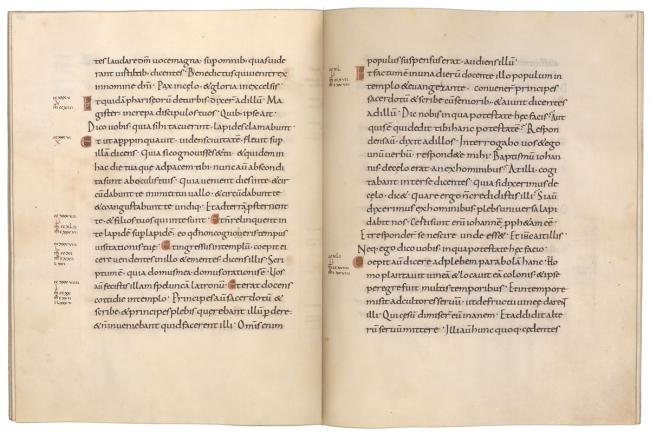 tes laudare dm̄ voce magna · sup omnib; quas uide
rant uirtutib; dicentes · Benedictus qui uenit rex
in nomine dm̄i · Pax in celo · & gloria in excelsis
Et quidā phariseorū de turbis dixer̄ ad illū · Ma
gister increpa discipulos tuos · Quib; ipse ait ·
Dico uobis quia si hi tacuerint · lapides clamabunt
Et ut appropinquauit · uidens ciuitatē · fleuit sup
illā dicens · Quia si cognouisses & tu · & quidem in
hac die tua que ad pacem tibi · nunc autē abscondi
ta sunt ab oculis tuis · Quia uenient dies in te · & cir
cūdabunt te inimici tui uallo · & circūdabunt te
& coangustabunt te undiq; · Et ad terrā psternent
te · & filios tuos qui in te sunt · Et nō relinquent in
te lapidē sup lapidē · eo quod non cognoueris tempus
uisitationis tue · Et ingressus in templū · coepit ei
cere uendentes in illo & ementes · dicens illis · Scri
ptum ē · quia domus mea domus orationis ē · Uos
autē fecistis illam speluncā latronū · Et erat docens
cotidie in templo · Principes autē sacerdotū &
scribe & principes plebis querebant illū pdere ·
& nō inueniebant quid facerent illi · Omnis enim
populus suspensus erat · audiens illū ·
Et factum ē in una dierū docente illo populum in
templo & euangelizante · conuener̄ principes
sacerdotū & scribe cū seniorib; · & aiunt dicentes
ad illū · Dic nobis in qua potestate hec facis · Aut
quis ē qui dedit tibi hanc potestatē · Respon
dens autē · dixit ad illos · Interrogabo uos & ego
unū uerbū · respondete mihi · Baptismū iohan
nis de celo erat an ex hominibus · At illi · cogi
tabant inter se dicentes · Quia si dixerimus de
celo · dic& · Quare ergo nō credidistis illi · Si autē
dixerimus ex hominibus · plebs uniuersa lapi
dabit nos · Certi sunt enī iohannē pph&am eē ·
Et responder̄ se nescire unde ess& · Et ihc ait illis ·
Neq; ego dico uobis in qua potestate hec facio ·
Coepit autē dicere ad plebem parabolā hanc · Ho
mo plantauit uineā & locauit eā colonis · & ipse
peregre fuit multis temporibus · Et in tempore
misit ad cultores seruū · ut de fructu uinee darent
illi · Qui cesū dimiser̄ eū inanem · Et addidit alte
rū seruū mittere · Illi autē hunc quoq; cedentes